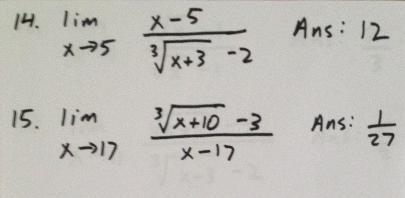 14. lim x→5 (x-5)/(∛(x+3) -2) Ans: 12
15. lim x→17 (∛(x+10) -3)/(x-17) Ans: 1/27